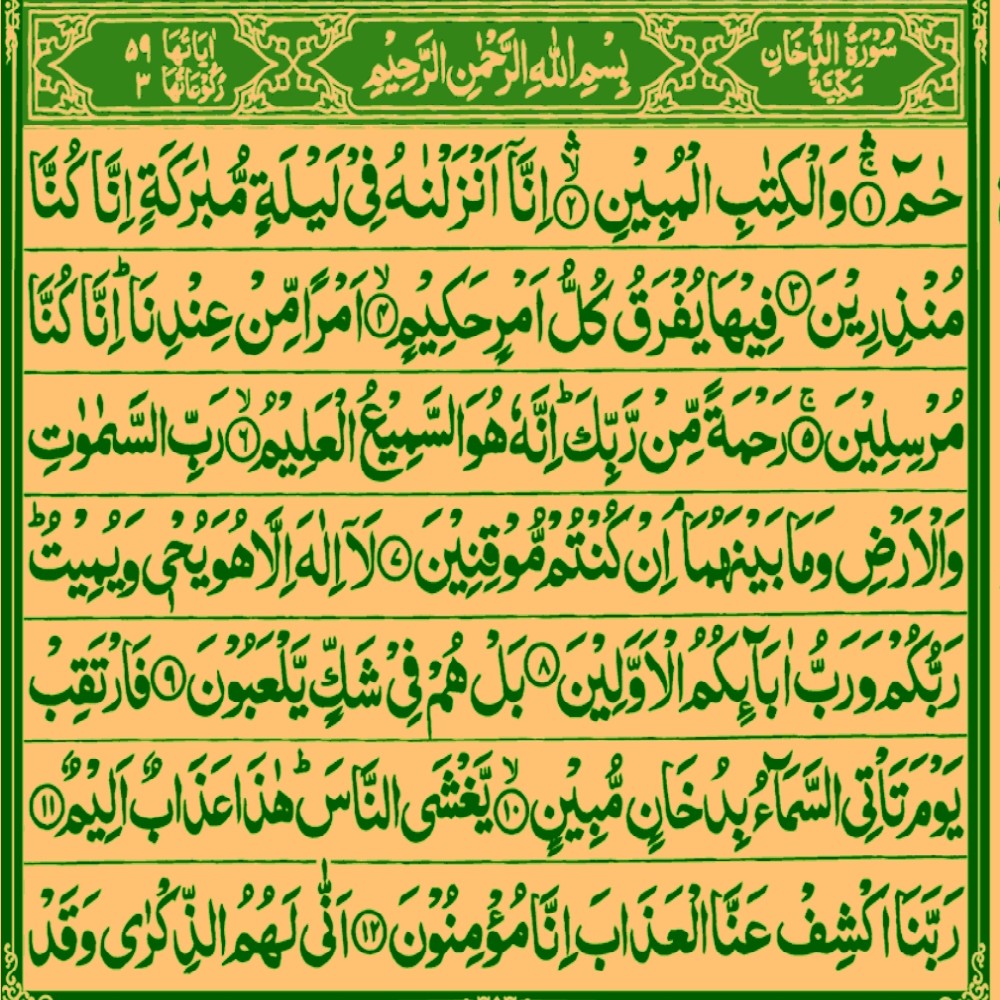 سُوْرَةُ الدُّخَانِ مَكِّيَّةٌ
بِسْمِ اللّٰهِ الرَّحْمٰنِ الرَّحِيْمِ
اٰيَاتُهَا ۵۹ رُكُوْعَاتُهَا ۳
حٰمٓ ۚۛ﴿۱﴾ وَالْكِتٰبِ الْمُبِيْنِ ۙۛ﴿۲﴾ اِنَّاۤ اَنْزَلْنٰهُ فِيْ لَيْلَةٍ مُّبٰرَكَةٍ اِنَّا كُنَّا
مُنْذِرِيْنَ ﴿۳﴾ فِيْهَا يُفْرَقُ كُلُّ اَمْرٍ حَكِيْمٍ ۙ﴿۴﴾ اَمْرًا مِّنْ عِنْدِنَا ؕ اِنَّا كُنَّا
مُرْسِلِيْنَ ۚ﴿۵﴾ رَحْمَةً مِّنْ رَّبِّكَ ؕ اِنَّهٗ هُوَ السَّمِيْعُ الْعَلِيْمُ ۙ﴿۶﴾ رَبِّ السَّمٰوٰتِ
وَالْاَرْضِ وَمَا بَيْنَهُمَا ۘ اِنْ كُنْتُمْ مُّوْقِنِيْنَ ﴿۷﴾ لَاۤ اِلٰهَ اِلَّا هُوَ يُحْيٖ وَيُمِيْتُ ؕ
رَبُّكُمْ وَرَبُّ اٰبَآىِٕكُمُ الْاَوَّلِيْنَ ﴿۸﴾ بَلْ هُمْ فِيْ شَكٍّ يَّلْعَبُوْنَ ﴿۹﴾ فَارْتَقِبْ
يَوْمَ تَاْتِي السَّمَآءُ بِدُخَانٍ مُّبِيْنٍ ۙ﴿۱۰﴾ يَّغْشَى النَّاسَ ؕ هٰذَا عَذَابٌ اَلِيْمٌ ﴿۱۱﴾
رَبَّنَا اكْشِفْ عَنَّا الْعَذَابَ اِنَّا مُؤْمِنُوْنَ ﴿۱۲﴾ اَنّٰى لَهُمُ الذِّكْرٰى وَقَدْ